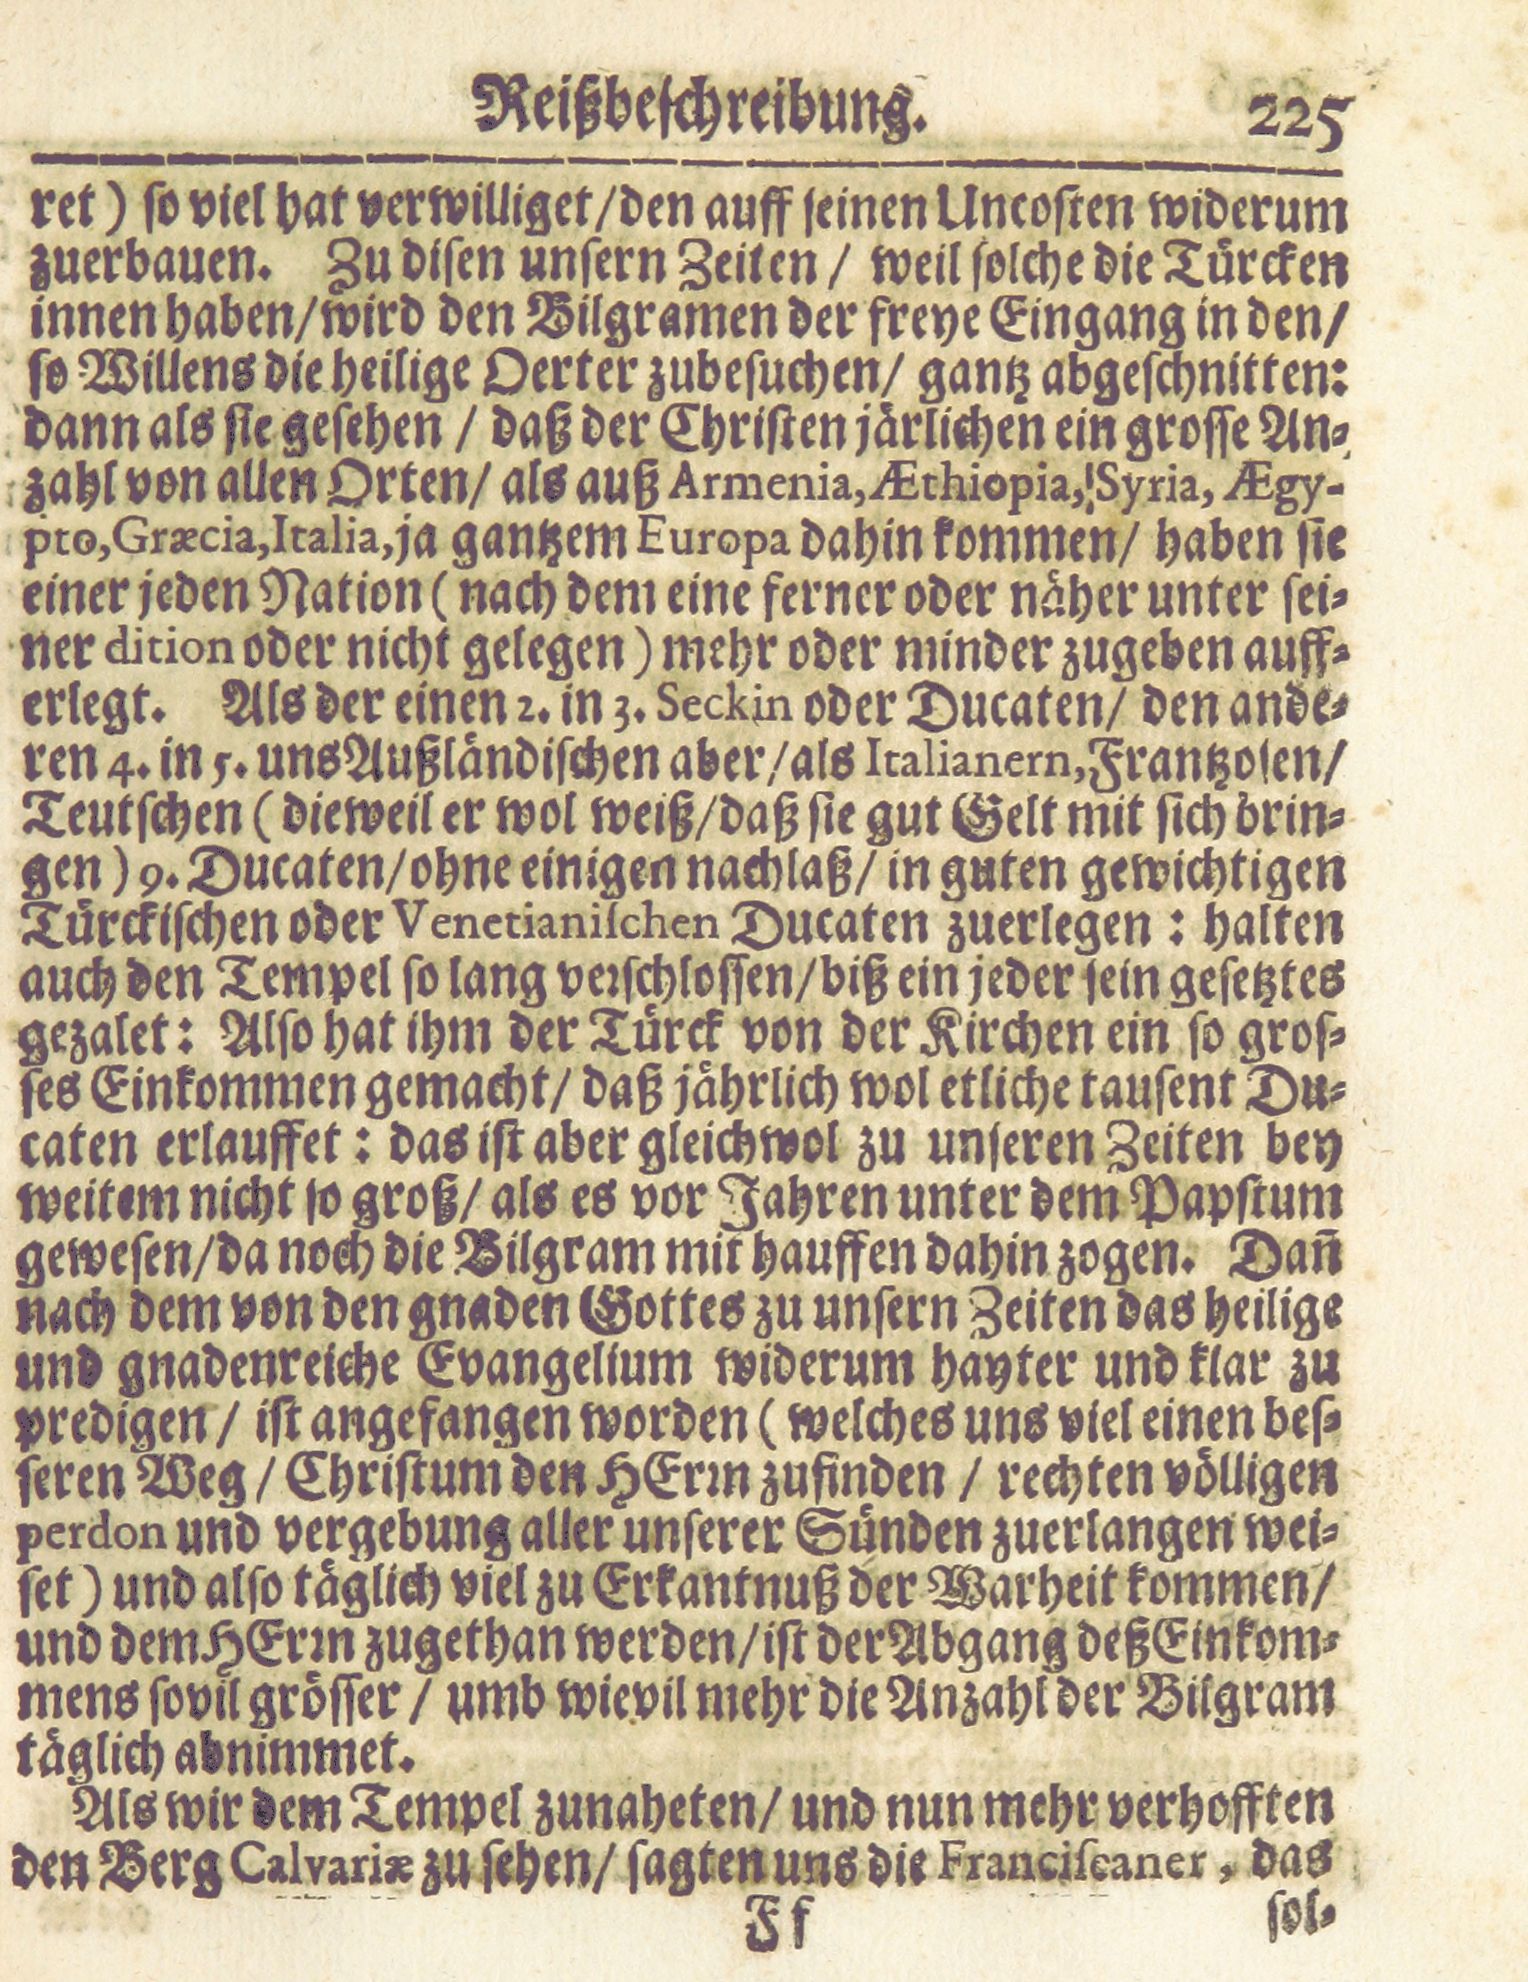 Reißbeſchreibung. 225
ret ) ſo viel hat verwilliget / den auff ſeinen Uncoſten widerum
zuerbauen. Zu diſen unſern Zeiten / weil ſolche die Türcken
innen haben / wird den Bilgramen der freye Eingang in den /
ſo Willens die heilige Oerter zubeſuchen / gantz abgeſchnitten:
dann als ſie geſehen / daß der Chriſten järlichen ein groſſe An-
zahl von allen Orten / als auß Armenia, Æthiopia, Syria, Ægy-
pto, Græcia, Italia, ja gantzem Europa dahin kommen / haben ſie
einer jeden Nation ( nach dem eine ferner oder näher unter ſei-
ner dition oder nicht gelegen ) mehr oder minder zugeben auff-
erlegt. Als der einen 2. in 3. Seckin oder Ducaten / den ande-
ren 4. in 5. uns Außländiſchen aber / als Italianern, Frantzoſen /
Teutſchen ( dieweil er wol weiß / daß ſie gut Gelt mit ſich brin-
gen ) 9. Ducaten / ohne einigen nachlaß / in guten gewichtigen
Türckiſchen oder Venetianiſchen Ducaten zuerlegen : halten
auch den Tempel ſo lang verſchloſſen / biß ein jeder ſein geſetztes
gezalet : Alſo hat ihm der Türck von der Kirchen ein ſo groſ-
ſes Einkommen gemacht / daß jährlich wol etliche tauſent Du-
caten erlauffet : das iſt aber gleichwol zu unſeren Zeiten bey
weitem nicht ſo groß / als es vor Jahren unter dem Papſtum
geweſen / da noch die Bilgram mit hauffen dahin zogen. Dañ
nach dem von den gnaden Gottes zu unſern Zeiten das heilige
und gnadenreiche Evangelium widerum hayter und klar zu
predigen / iſt angefangen worden ( welches uns viel einen beſ-
ſeren Weg / Chriſtum den HErꝛn zufinden / rechten völligen
perdon und vergebung aller unſerer Sünden zuerlangen wei-
ſet ) und alſo täglich viel zu Erkantnuß der Warheit kommen /
und dem HErꝛn zugethan werden / iſt der Abgang deß Einkom-
mens ſovil gröſſer / umb wievil mehr die Anzahl der Bilgram
täglich abnimmet.
Als wir dem Tempel zunaheten / und nun mehr verhofften
den Berg Calvariæ zu ſehen / ſagten uns die Franciſcaner, das
F f ſol-